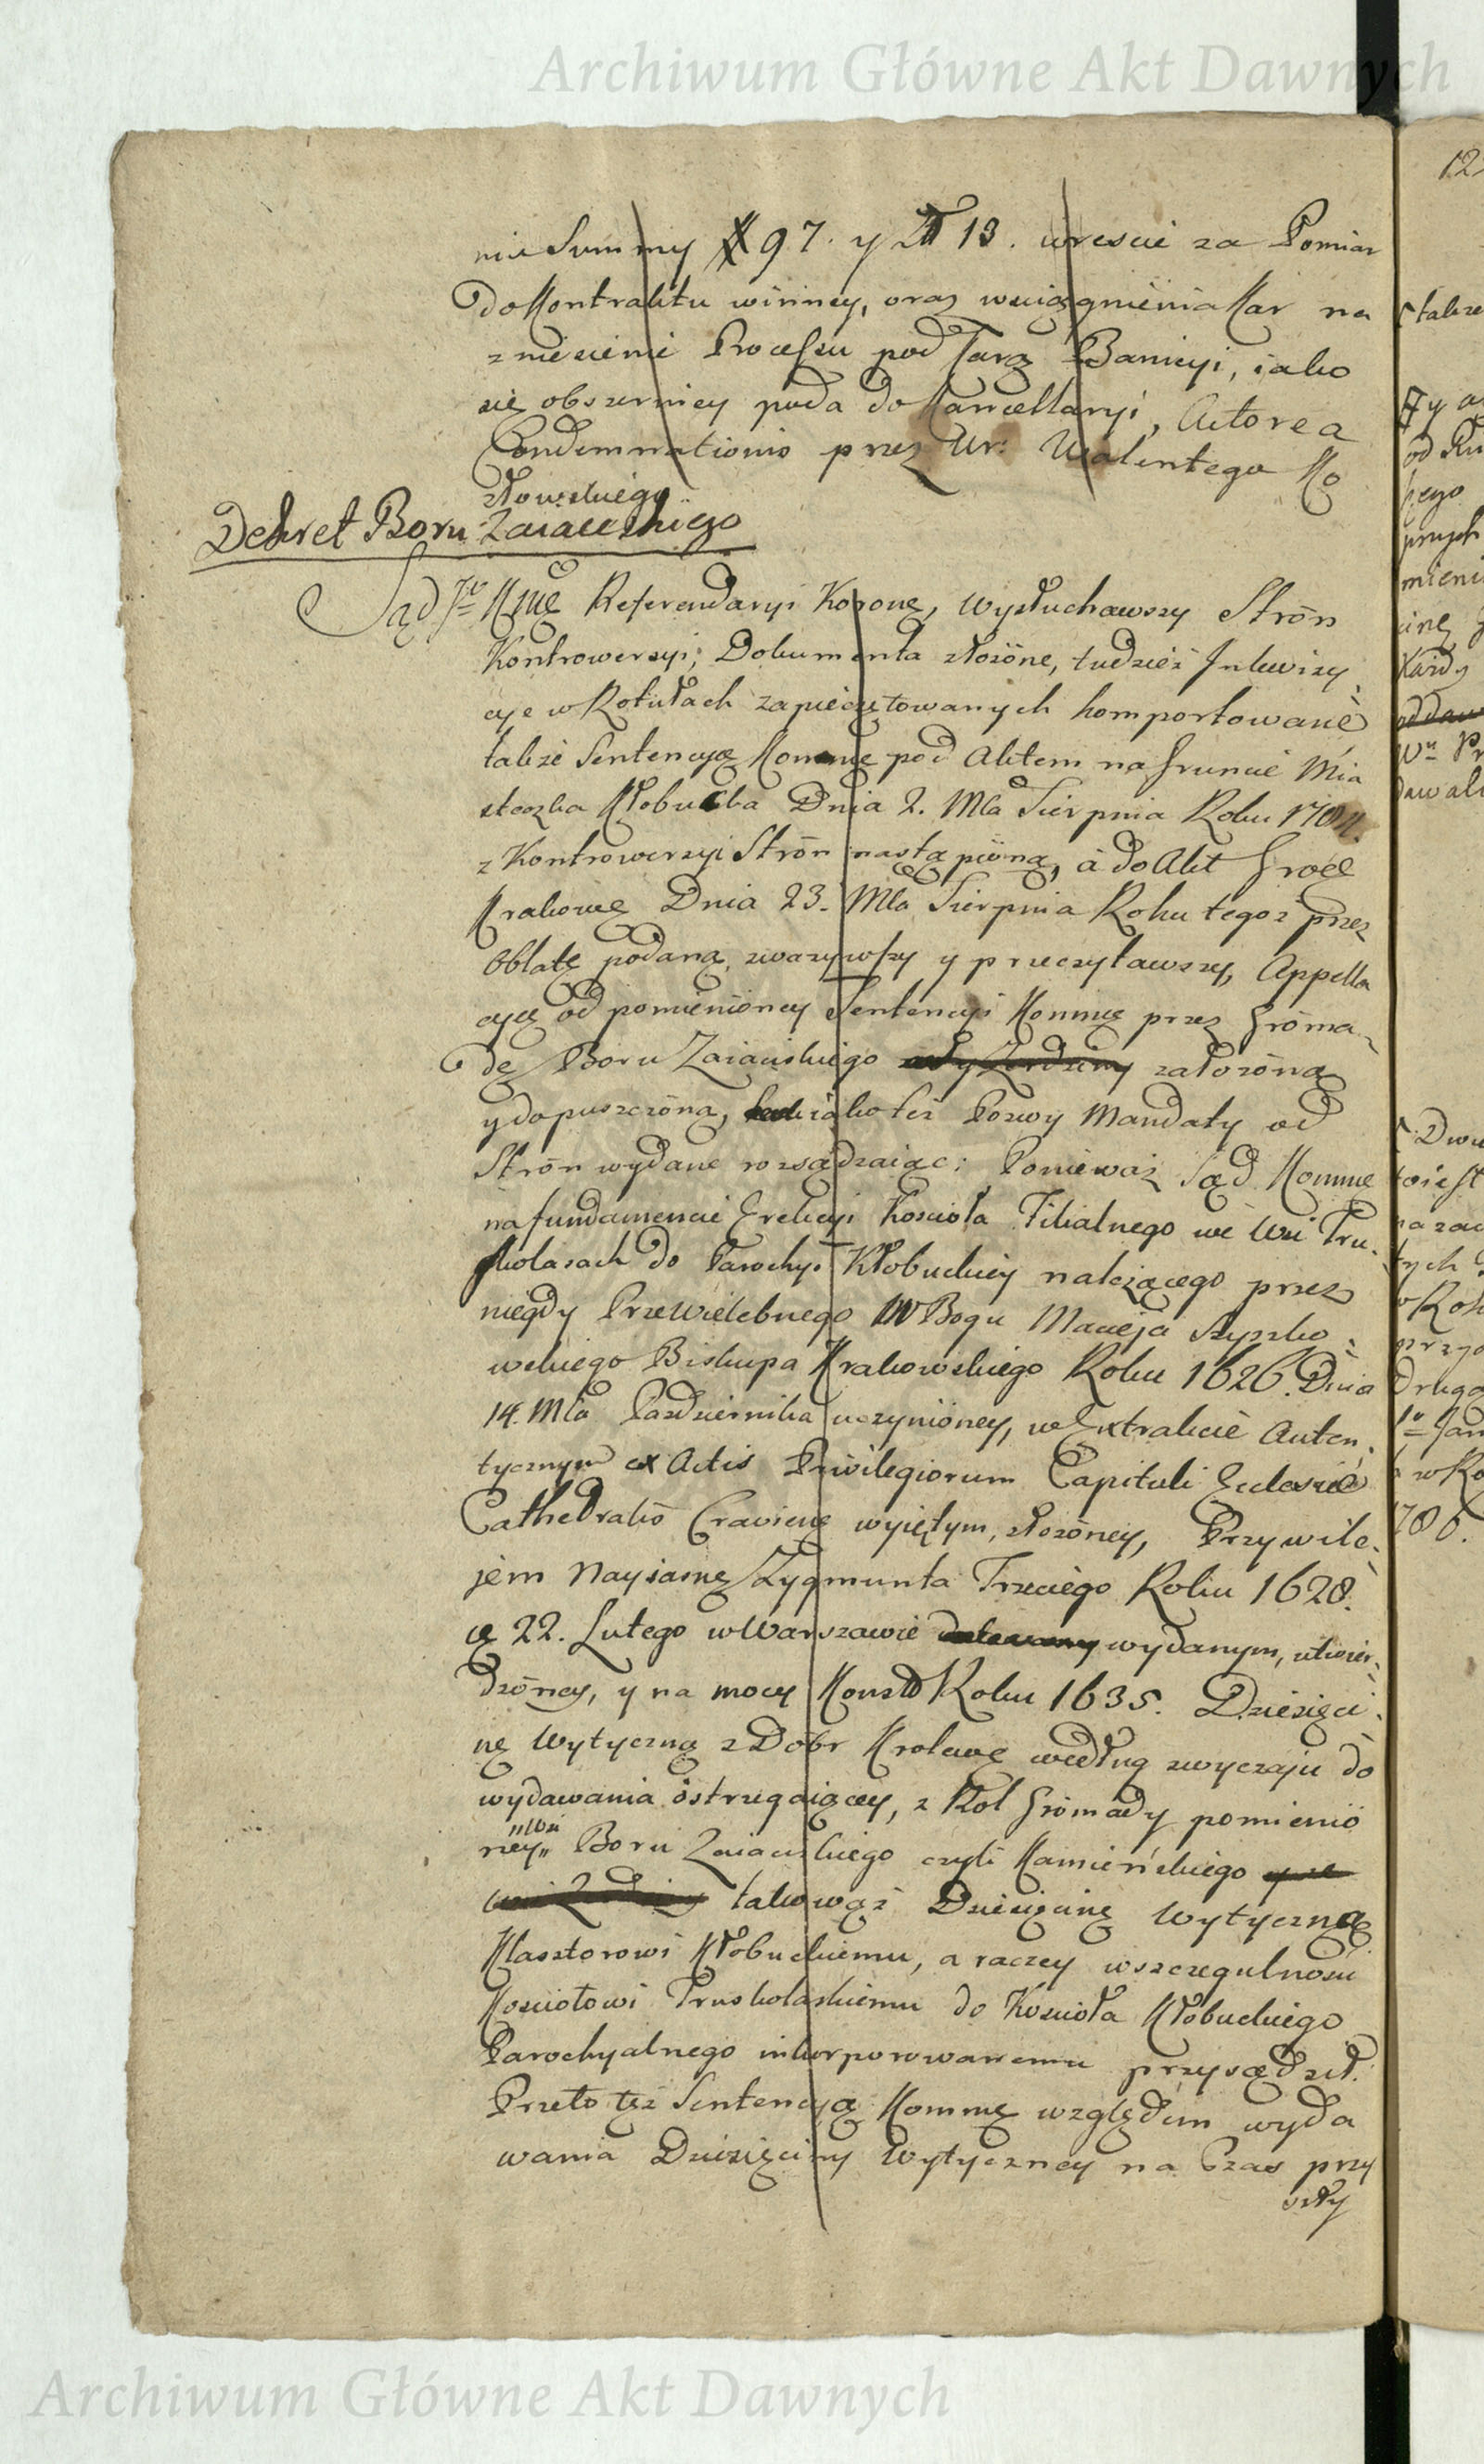 Archiwum Główne Akt Dawnych
nie Summy 97. y Zł 13. wreście za Pomiar
do Kontraktu winney, oraz wciągnienia Kar na
zniesienie Processu pod Karą Banicyi, iako
się obszerniey poda do Kancellaryi, Actorea
Condemnationis przez Ur: Walentego Ko
złowskiego
Dekret Boru Zaiacskiego
Sąd JKMcę Referendaryi Koronę, Wysłuchawszy Strón
Kontrowersyi; Dokumenta złożóne, tudzież Inkwizy
cye w Rotułach zapieczętowanych komportowane
także Sentencyą Kommę pod Aktem na Gruncie Mia
steczka Kłobucka Dnia 2. Mca Sierpnia Roku 1784.
z Kontrowersyi Strón nastąpióną, à do Akt Grodę
Krakowę Dnia 23. Mca Sierpnia Roku tegoż przez
Oblatę podaną, zważywszy y przeczytawszy, Appella
cyę od pomienióney Sentencyi Kommę przez Gróma
dę Boru Zaiacskiego założóną
y dopuszczóną, iako też Pozwy Mandaty od
Strón wydane rozsądzaiąc: Ponieważ Sąd Kommę
na fundamencie Erekcyi Kościoła Filialnego we Wsi Tru
skolasach do Parochyi Kłobuckiey należącego przez
niegdy Przewielebnego W Bogu Macieja Szyszko
wskiego Biskupa Krakowskiego Roku 1626. Dnia
14. Mca Października uczynióney, w Extrakcie Auten
tycznym ex Actis Privilegiorum Capituli Ecclesiæ
Cathedralis Cracvienę wyiętym, złożóney, Przywile
jem Nayiasnę Zygmunta Trzeciego Roku 1628.
22. Lutego w Warszawie wydanym, utwier
dzóney, y na mocy Konstt Roku 1635. Dziesięci
nę Wytyczną z Dóbr Królewę według zwyczaju do
wydawania ostrzegaiącey, z Ról Grómady pomienió
ney Wsi Boru Zaiacskiego czyli Kamieńskiego
takowąż Dziesięcinę Wytyczną
Klasztorowi Kłobuckiemu, a raczey w szczegulnosci
Kościołowi Truskolaskiemu do Kościoła Kłobuckiego
Parochyalnego inkorporowanemu przysądził.
Przeto tęż Sentencyą Kommę względem wyda
wania Dziesięciny Wytyczney na Czas przy
szły
Archiwum Główne Akt Dawnych